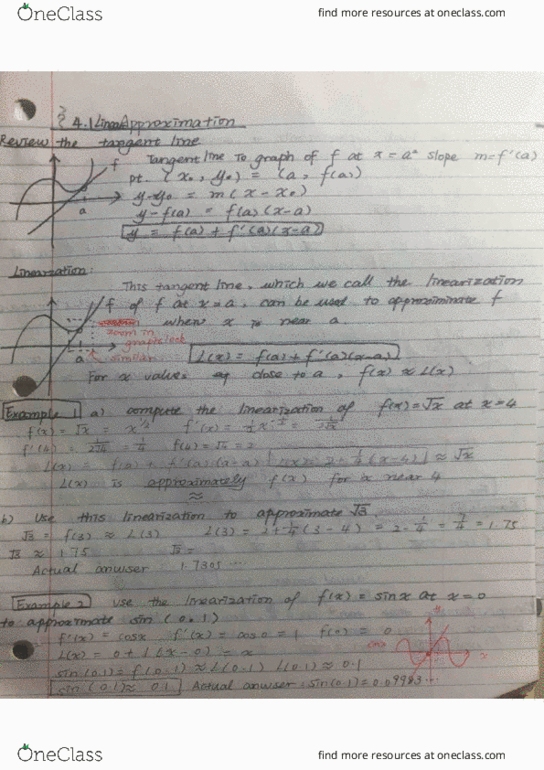 OneClass
find more resources at oneclass.com
§ 4.1 Linear Approximation
Review the tangent line
f
Tangent line to graph of f at x = a" slope m = f'(a)
pt. (x₀, y₀) = (a, f(a))
y-y₀ = m(x-x₀)
a
y-f(a) = f(a)(x-a)
y = f(a) + f'(a)(x-a)
Linearization:
This tangent line, which we call the linearization
f of f at x=a, can be used to approximinate f
when x is near a.
zoom in
graphs look
similar
a
L(x) = f(a) + f'(a)(x-a)
For x values close to a, f(x) ≈ L(x)
Example 1 a) compute the linearization of f(x)=√x at x=4
f(x) = √x = x^½ f'(x) = ½x^-½ = 1/2√x
f'(4) = 1/2√4 = ¼ f(4) = √4 = 2
L(x) = f(a) + f'(a)(x-a) L(x) = 2 + ¼(x-4) ≈ √x
L(x) is approximately f(x) for x near 4
≈
b) Use this linearization to approximate √3
√3 = f(3) ≈ L(3) L(3) = 2+¼(3-4) = 2-¼ = 7/4 = 1.75
√3 ≈ 1.75 √3 =
Actual anwser 1.7305...
Example 2 use the linearization of f(x) = sinx at x=0
to approximate sin(0.1)
f'(x) = cosx f'(x) = cos0 = 1 f(0) = 0
L(x) = 0 + 1(x-0) = x
sin(0.1) = f(0.1) ≈ L(0.1) L(0.1) ≈ 0.1
sin(0.1) ≈ 0.1 Actual anwser: sin(0.1) = 0.09983...
OneClass
find more resources at oneclass.com